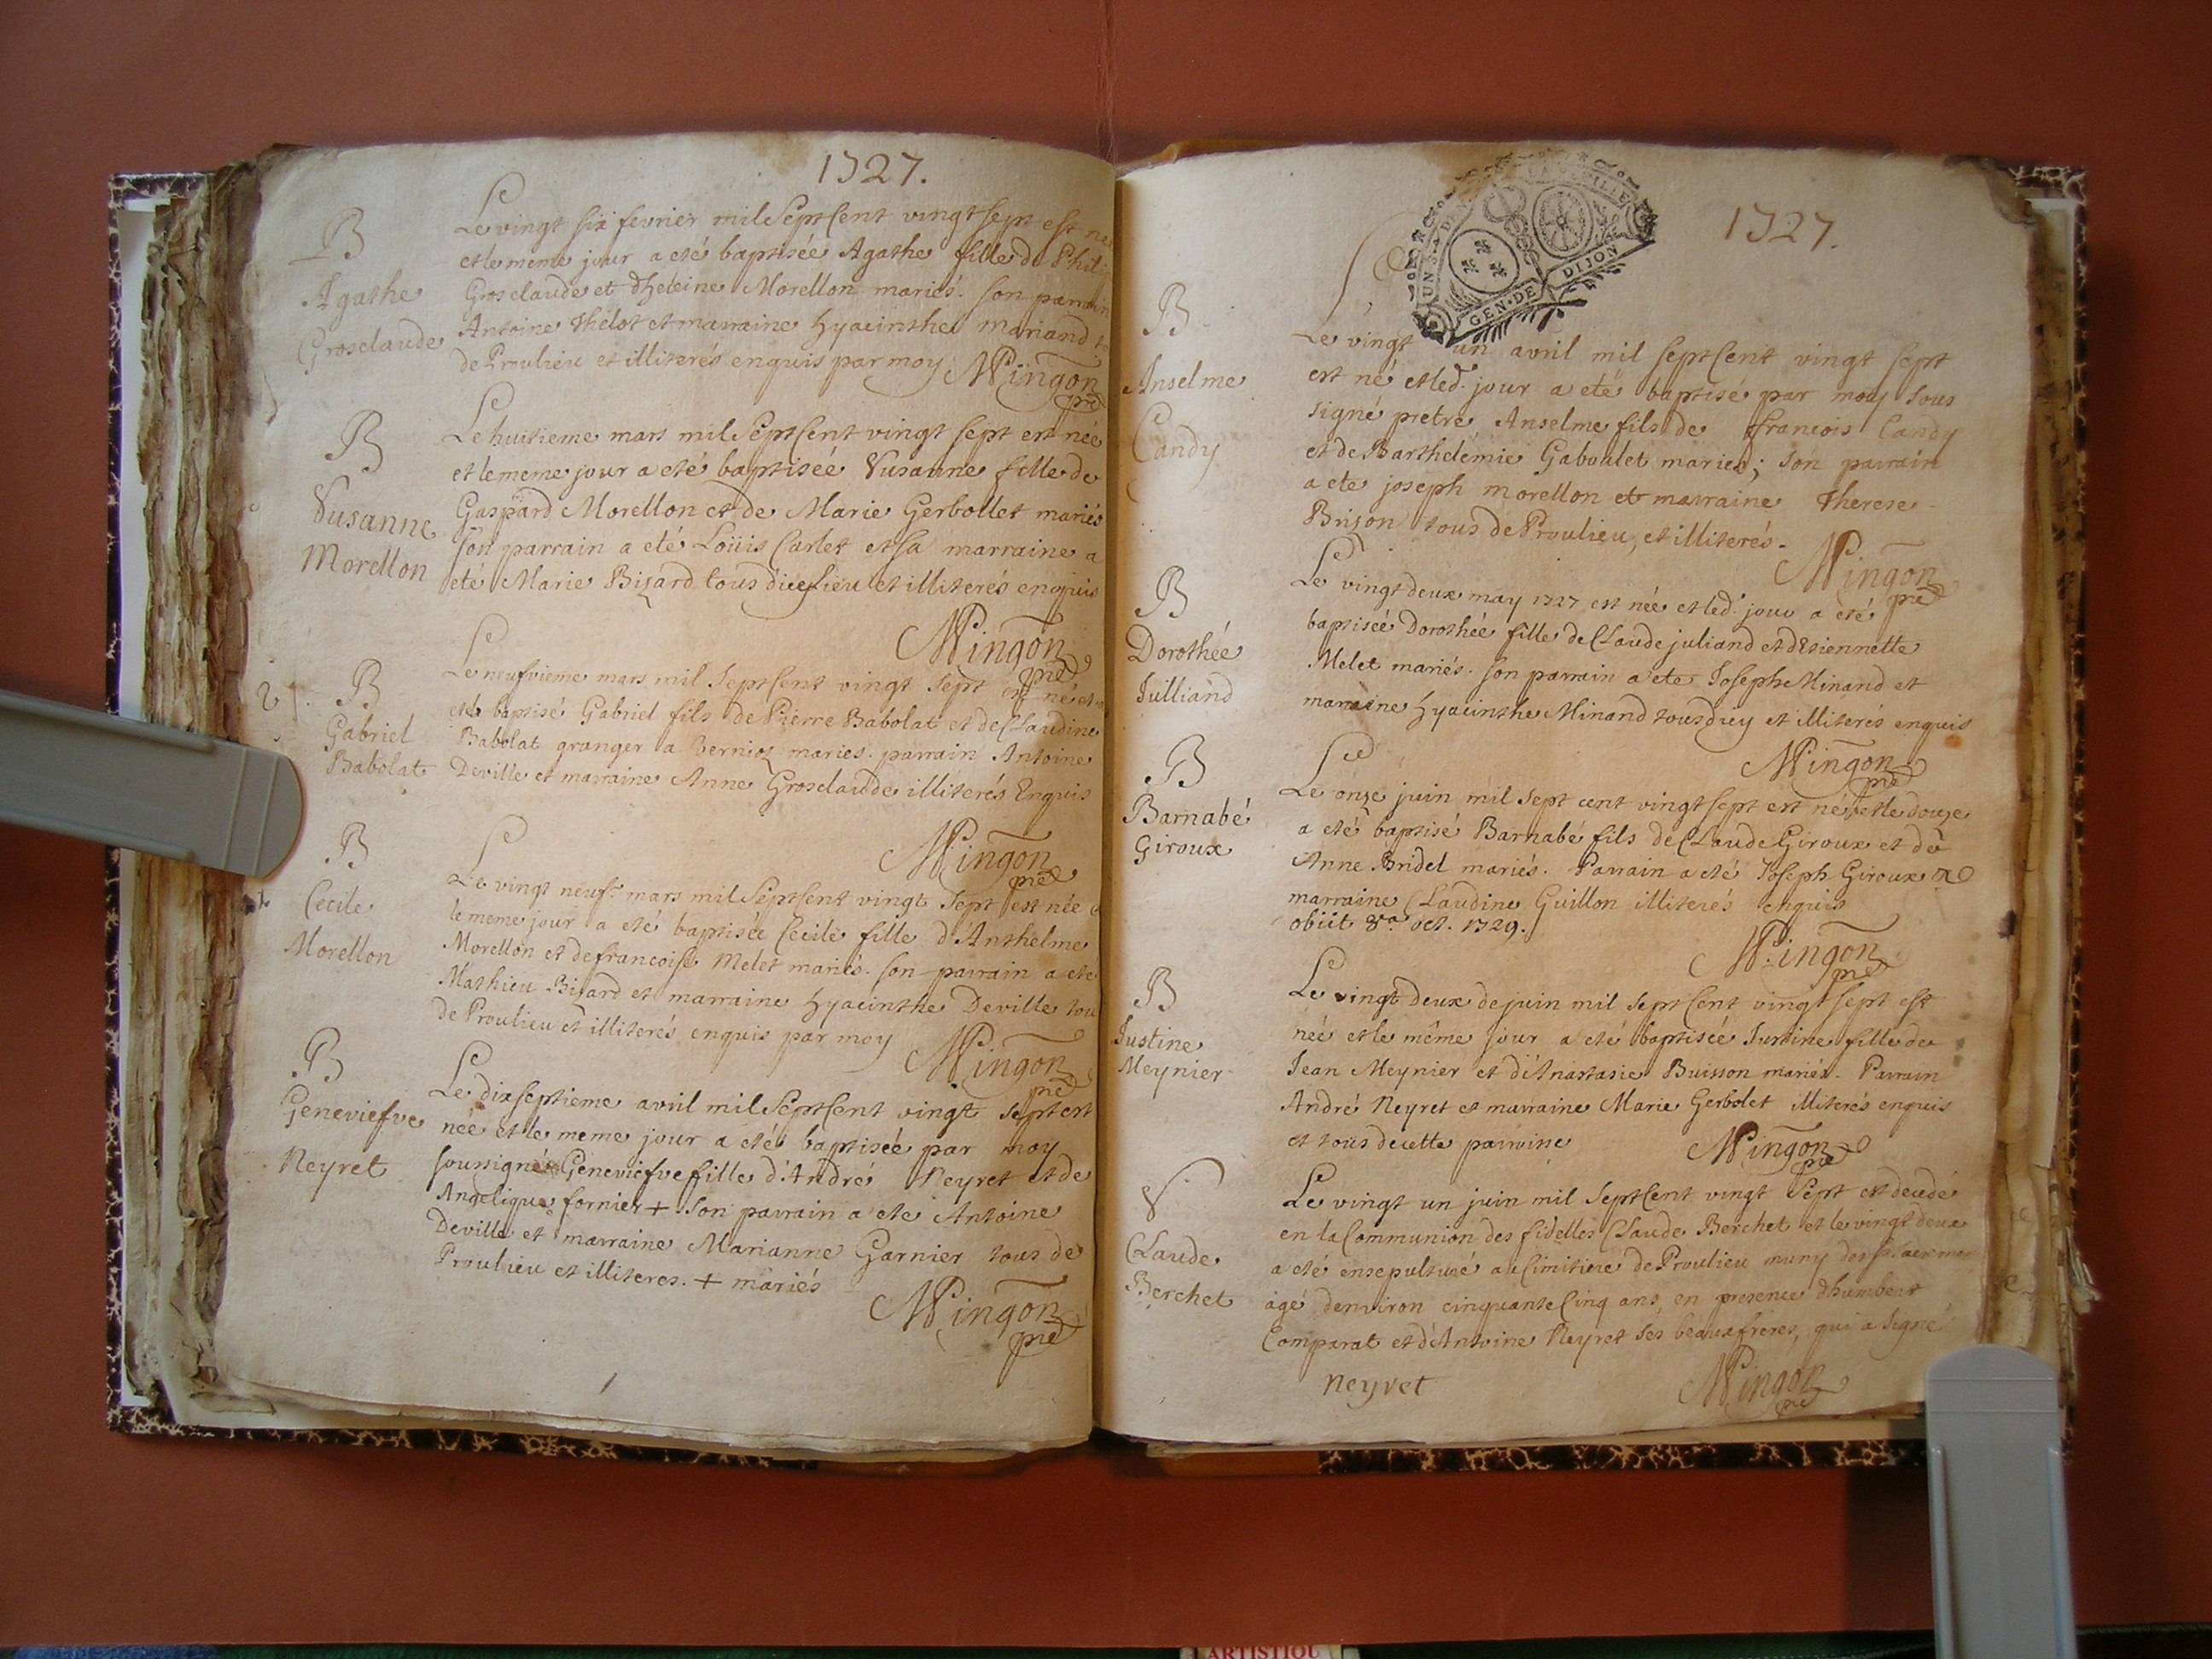 1727.
B
Agathe
Grosclaude
Le vingt six fevrier mil Sept Cent vingt sept est née
et le meme jour a eté baptisée Agathe fille de
Grosclaude et d'heleine Morellon mariés. son parrain
Antoine Thelot et marraine hyacinthe
de Proulieu et illiterés enquis par moy Mingon
pre
B
Susanne
Morellon
Le huitieme mars mil Sept Cent vingt sept est née
et le meme jour a eté baptisée Susanne fille de
Gaspard Morellon et de Marie Gerbollet mariés
son parrain a eté Loüis Carlet et sa marraine a
eté Marie Bizard tous dice lieu et illiterés enquis
Mingon
pre
B
Gabriel
Babolat
Le neufvieme mars mil Sept Cent vingt sept est né et a
eté baptisé Gabriel fils de Pierre Babolat et de Claudine
Babolat granger a Vernioz mariés. parrain Antoine
Deville et marraine Anne Grosclaude illiterés Enquis
Mingon
pre
B
Cecile
Morellon
Le vingt neufe mars mil Sept Cent vingt Sept est née
le meme jour a eté baptisée Cecile fille d'Anthelme
Morellon et de francoise Melet mariés. son parrain a eté
Mathieu Bizard et marraine hyacinthe Deville tou
de Proulieu et illiterés enquis par moy
Mingon
pre
B
Geneviefve
Neyret
Le dix septieme avril mil Sept Cent vingt sept est
née et le meme jour a eté baptisée par moy
soussigné Geneviefve fille d'André Neyret et de
Angelique fornier + son parrain a eté Antoine
Deville et marraine Marianne Garnier tous de
Proulieu et illiteres. + mariés
Mingon
pre
1727.
UN S 4 DEN LA FEUILLE
GEN. DE DIJON
B
Anselme
Candy
Le vingt un avril mil sept Cent vingt sept
est né et led. jour a eté baptisé par moy sous
signé pretre Anselme fils de francois Candy
et de Barthelemie Gaboulet mariés; son parrain
a ete joseph morellon et marraine Therese
Brison tous de Proulieu, et illiterés.
Mingon
pre
B
Dorothée
Julliand
Le vingt deux may 1727 est née et led. jour a eté
baptisée Dorothée fille de Claude juliand et d'Etiennette
Melet mariés. son parrain a ete Joseph Minand et
marraine hyacinthe Minand tous d'icy et illiterés enquis
Mingon
pre
B
Barnabé
Giroux
Le onze juin mil sept cent vingt sept est né, et le douze
a eté baptisé Barnabé fils de Claude Giroux et de
Anne Bridel mariés. Parrain a eté Joseph Giroux &
marraine Claudine Guillon illiterés enquis
obiit 8ra oct. 1729.
Mingon
pre
B
Justine
Meynier
Le vingt deux de juin mil sept Cent vingt sept est
née et le même jour a eté baptisée Justine fille de
Jean Meynier et d'Anastasie Buisson mariés. Parrain
André Neyret et marraine Marie Gerbolet illiterés enquis
et tous de cette paroisse
Mingon
pre
Claude
Berchet
Le vingt un juin mil Sept Cent vingt Sept est decedé
en la Communion des fidelles Claude Berchet et le vingt deux
a eté ensepulturé au Cimitiere de Proulieu muny des sacremens
agé denviron cinquante Cinq ans, en presence d'humbert
Comparat et d'Antoine Neyret ses beaux freres, qui a signé
Neyret
Mingon
pre
ARTISTIQU